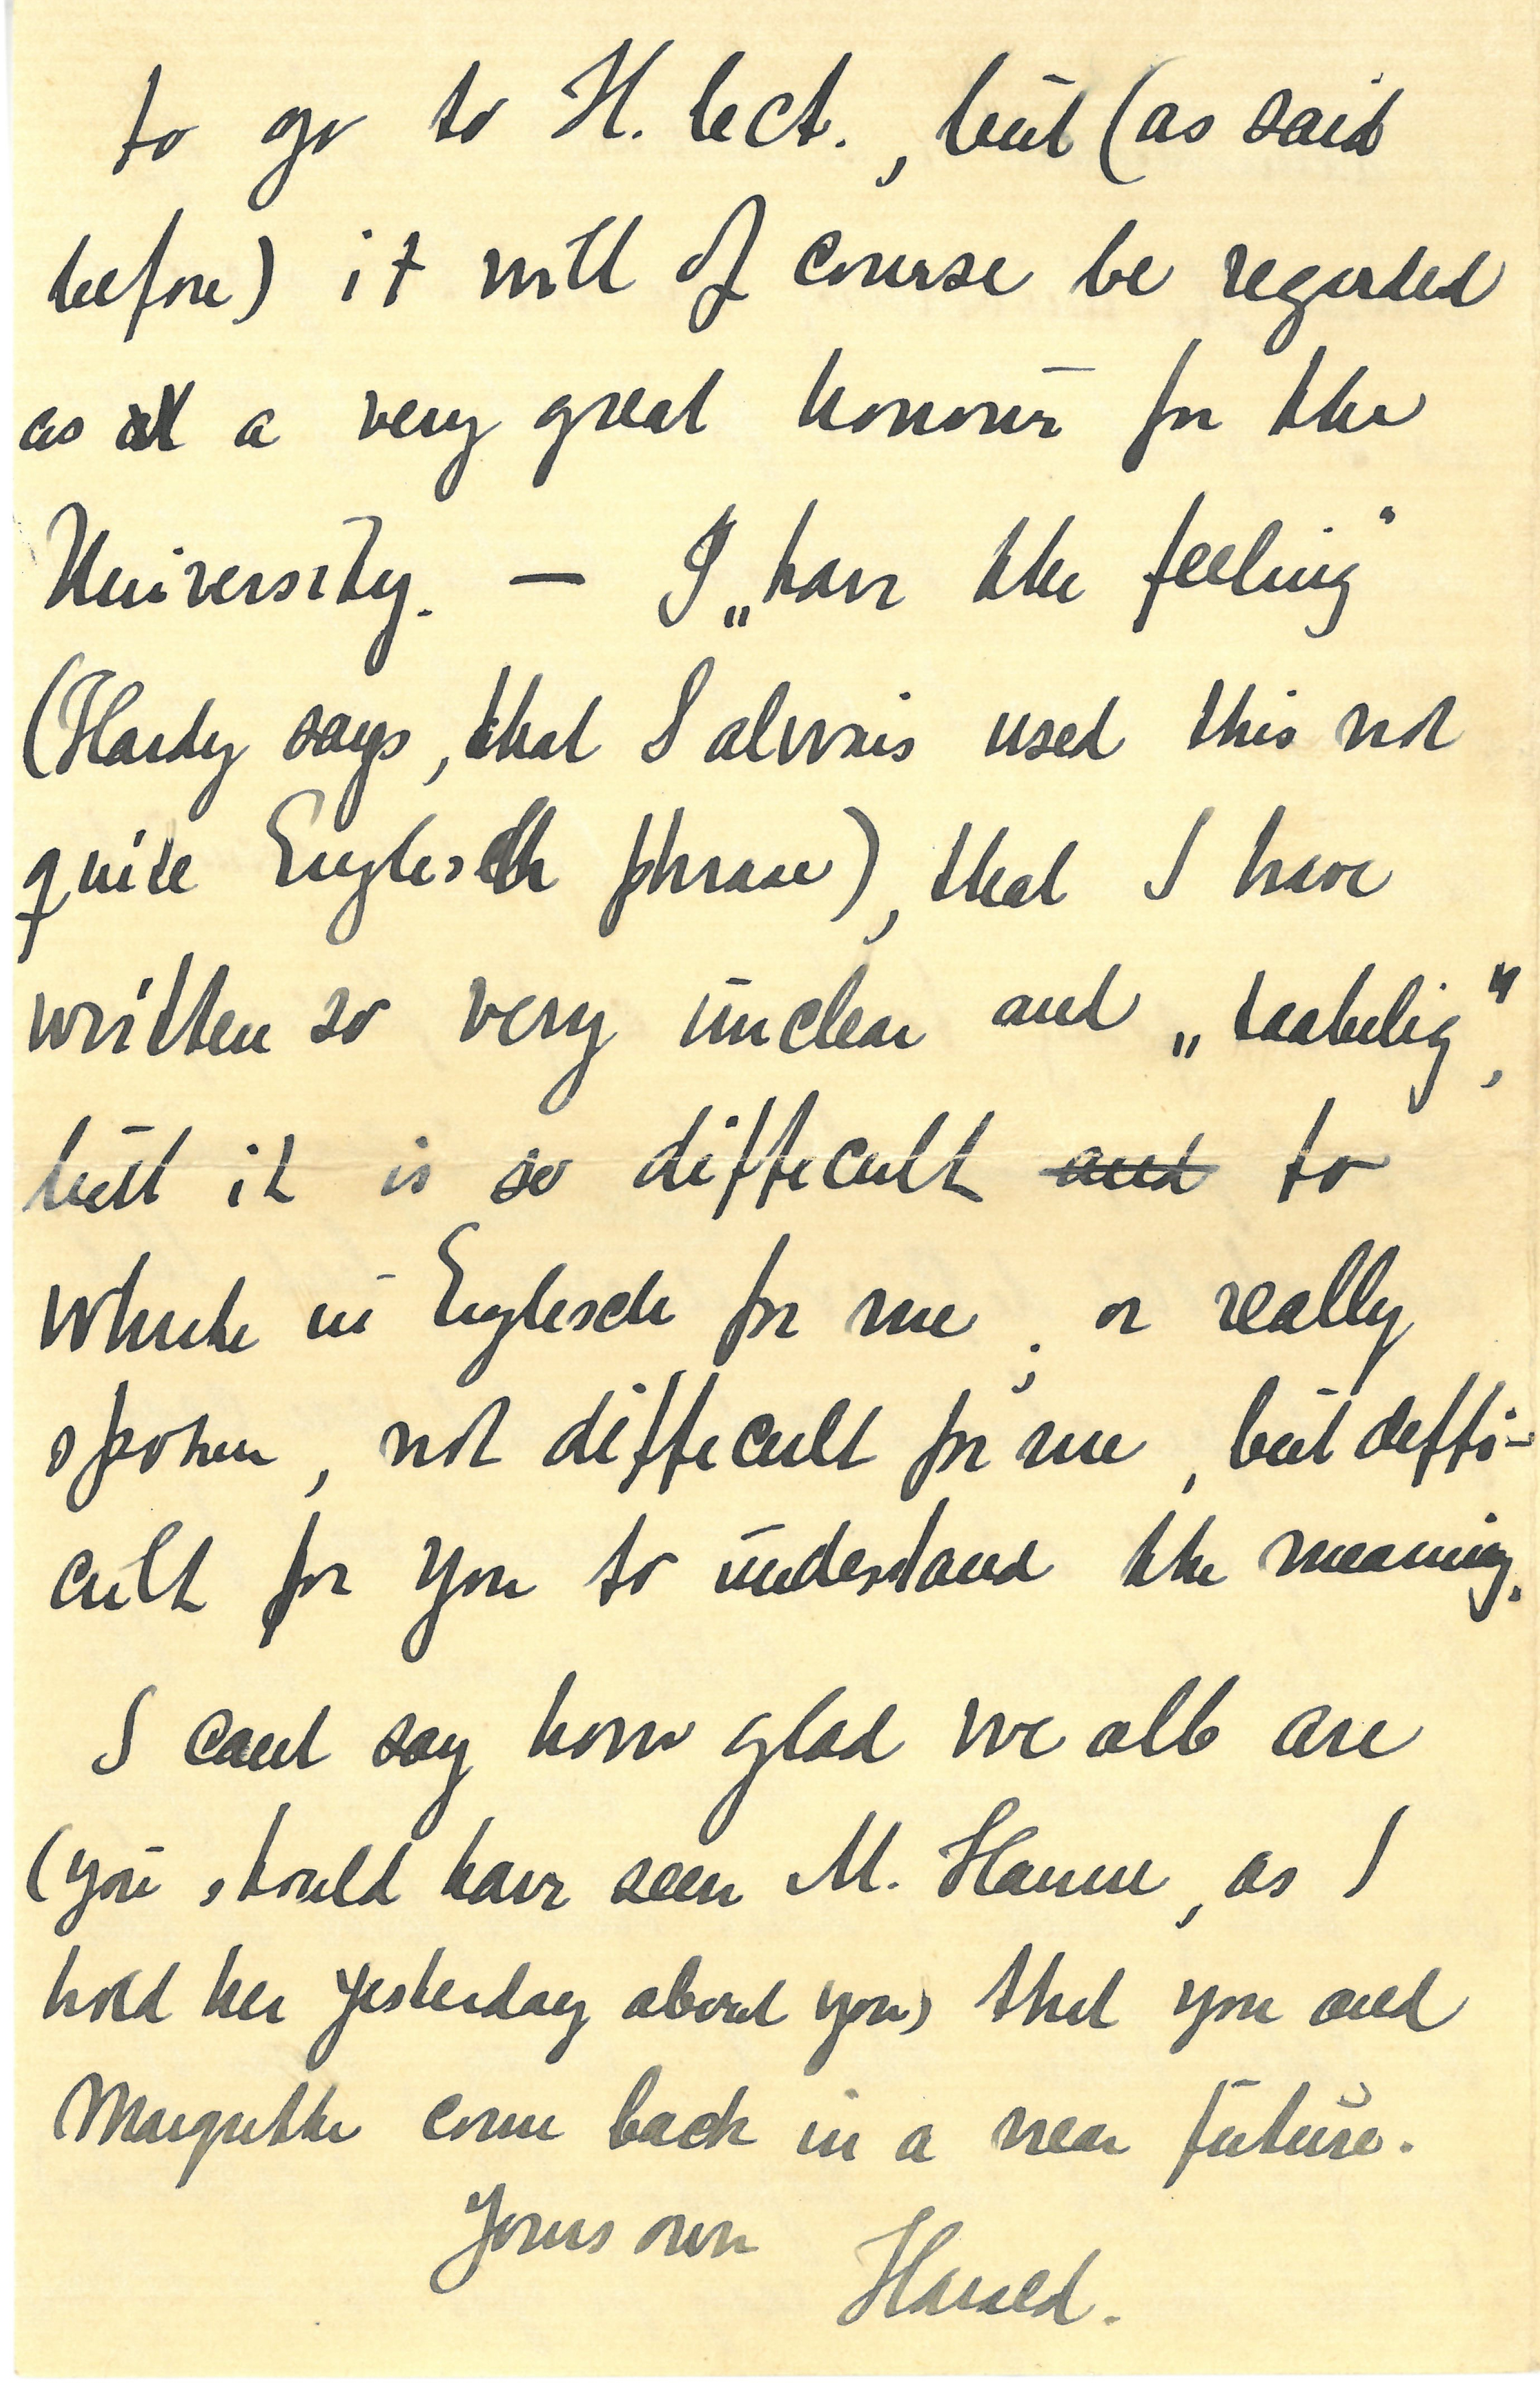 to go to H. lect., but (as said
before) it will of course be regarded
as a very great honour for the
University. — I „have the feeling"
(Hardy says, that I alwais used this not
quite Englisch phrase), that I have
written so very unclear and „taabelig",
butt it is so difficult and to
whrite in Englisch for me; or really
spoken, not difficult for me, but diffi-
cult for you to understand the meaning.
I cant say how glad we all are
(you should have seen M. Hanne, as I
told her yesterday about you) that you and
Margrethe come back in a near future.
Yours own
Harald.